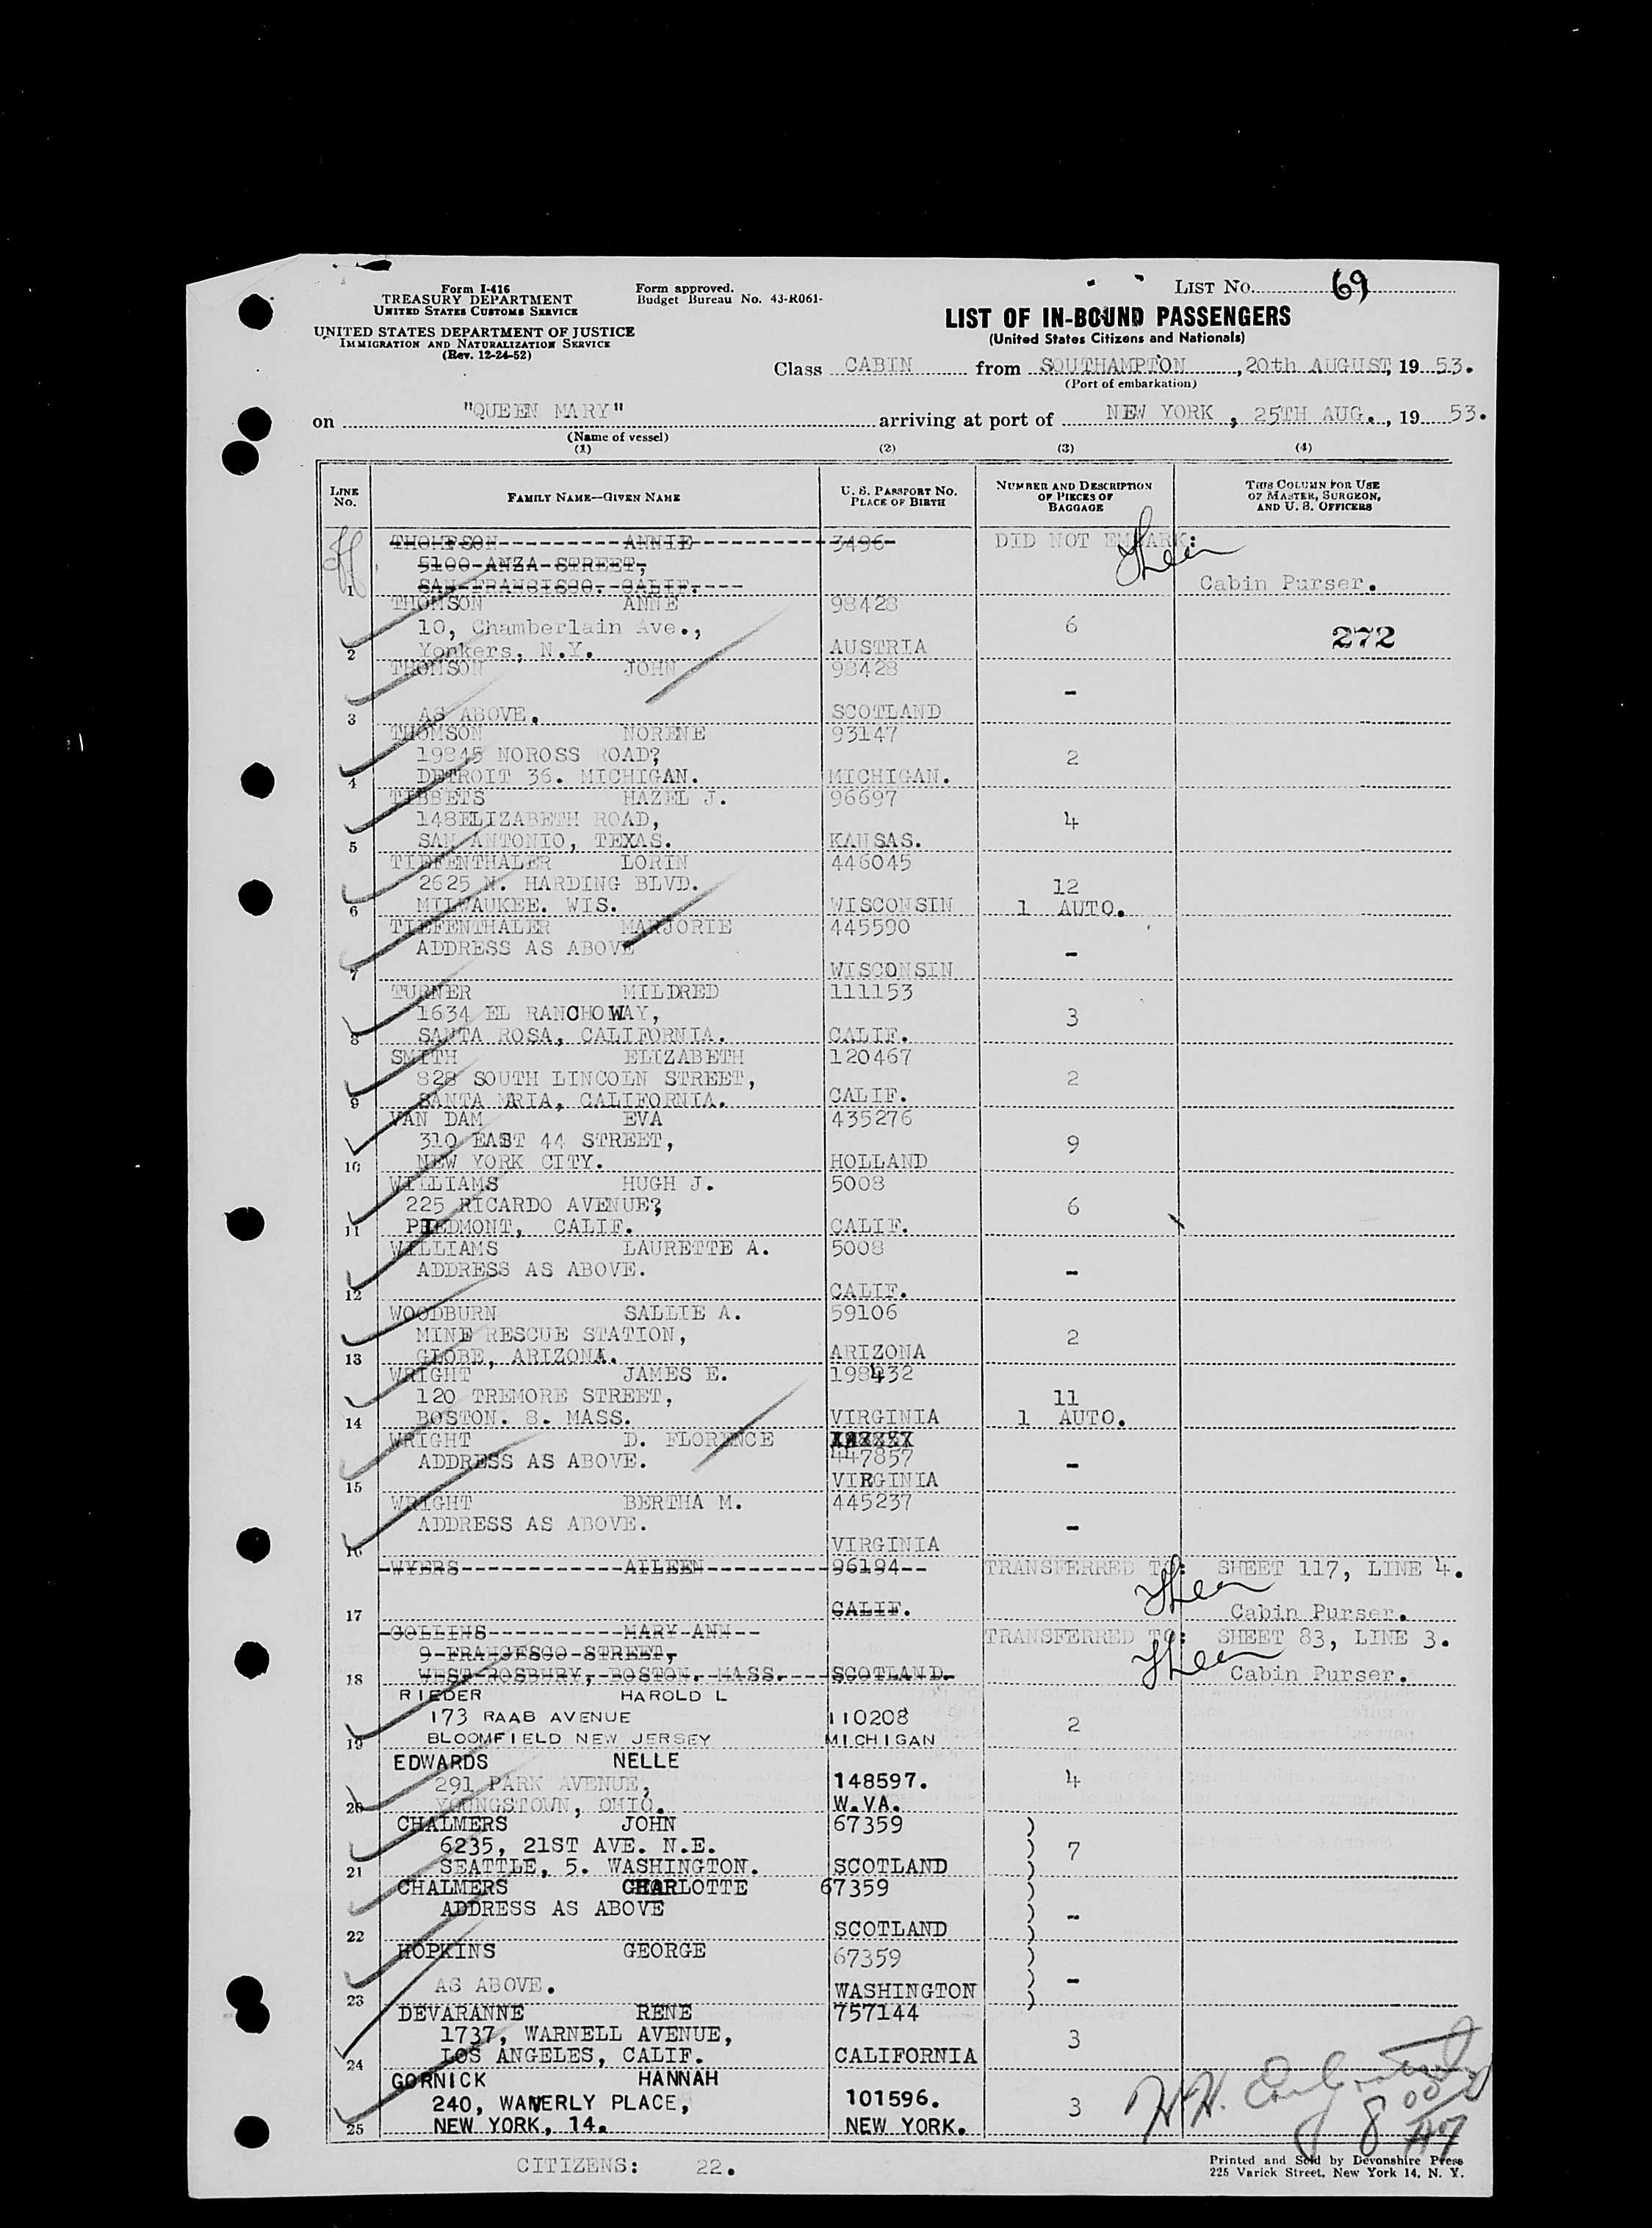 Form I-416
TREASURY DEPARTMENT
UNITED STATES CUSTOMS SERVICE
UNITED STATES DEPARTMENT OF JUSTICE
IMMIGRATION AND NATURALIZATION SERVICE
(Rev. 12-24-52)
Form approved.
Budget Bureau No. 43-R061-
LIST No. 69
LIST OF IN-BOUND PASSENGERS
(United States Citizens and Nationals)
Class CABIN from SOUTHAMPTON, 20th AUGUST, 19 53.
(Port of embarkation)
on "QUEEN MARY" arriving at port of NEW YORK, 25TH AUG., 19 53.
(Name of vessel)
(1) (2) (3) (4)
LINE No. FAMILY NAME—GIVEN NAME U. S. PASSPORT NO. PLACE OF BIRTH NUMBER AND DESCRIPTION OF PIECES OF BAGGAGE THIS COLUMN FOR USE OF MASTER, SURGEON, AND U. S. OFFICERS
THOMPSON ANNIE 3496 DID NOT EMBARK:
5100 ANZA STREET,
1 SAN FRANCISCO. CALIF. Cabin Purser.
THOMSON ANNE 98428
10, Chamberlain Ave., 6 272
2 Yonkers, N.Y. AUSTRIA
THOMSON JOHN 98428
-
3 AS ABOVE. SCOTLAND
THOMSON NORENE 93147
19845 NOROSS ROAD? 2
4 DETROIT 36. MICHIGAN. MICHIGAN.
TIBBETS HAZEL J. 96697
148ELIZABETH ROAD, 4
5 SAN ANTONIO, TEXAS. KANSAS.
TIEFENTHALER LORIN 446045
2625 N. HARDING BLVD. 12
6 MILWAUKEE. WIS. WISCONSIN 1 AUTO.
TIEFENTHALER MARJORIE 445590
ADDRESS AS ABOVE -
7 WISCONSIN
TURNER MILDRED 111153
1634 EL RANCHO WAY, 3
8 SANTA ROSA, CALIFORNIA. CALIF.
SMITH ELIZABETH 120467
828 SOUTH LINCOLN STREET, 2
9 SANTA MRIA, CALIFORNIA. CALIF.
VAN DAM EVA 435276
310 EAST 44 STREET, 9
10 NEW YORK CITY. HOLLAND
WILLIAMS HUGH J. 5008
225 RICARDO AVENUE? 6
11 PIEDMONT, CALIF. CALIF.
WILLIAMS LAURETTE A. 5008
ADDRESS AS ABOVE. -
12 CALIF.
WOODBURN SALLIE A. 59106
MINE RESCUE STATION, 2
13 GLOBE, ARIZONA. ARIZONA
WRIGHT JAMES E. 198432
120 TREMORE STREET, 11
14 BOSTON. 8. MASS. VIRGINIA 1 AUTO.
WRIGHT D. FLORENCE
ADDRESS AS ABOVE. 447857 -
15 VIRGINIA
WRIGHT BERTHA M. 445237
ADDRESS AS ABOVE. -
16 VIRGINIA
WYERS AILEEN 96194 TRANSFERRED TO: SHEET 117, LINE 4.
17 CALIF. Cabin Purser.
COLLINS MARY ANN TRANSFERRED TO: SHEET 83, LINE 3.
9 FRANCESCO STREET,
18 WEST ROSBURY, BOSTON. MASS. SCOTLAND. Cabin Purser.
RIEDER HAROLD L
173 RAAB AVENUE 110208 2
19 BLOOMFIELD NEW JERSEY MICHIGAN
EDWARDS NELLE
291 PARK AVENUE, 148597. 4
20 YOUNGSTOWN, OHIO. W.VA.
CHALMERS JOHN 67359
6235, 21ST AVE. N.E. 7
21 SEATTLE, 5. WASHINGTON. SCOTLAND
CHALMERS CHARLOTTE 67359
ADDRESS AS ABOVE -
22 SCOTLAND
HOPKINS GEORGE 67359
AS ABOVE. -
23 WASHINGTON
DEVARANNE RENE 757144
1737, WARNELL AVENUE, 3
24 LOS ANGELES, CALIF. CALIFORNIA
GORNICK HANNAH
240, WAVERLY PLACE, 101596. 3
25 NEW YORK, 14. NEW YORK.
CITIZENS: 22.
Printed and Sold by Devonshire Press
225 Varick Street, New York 14, N. Y.